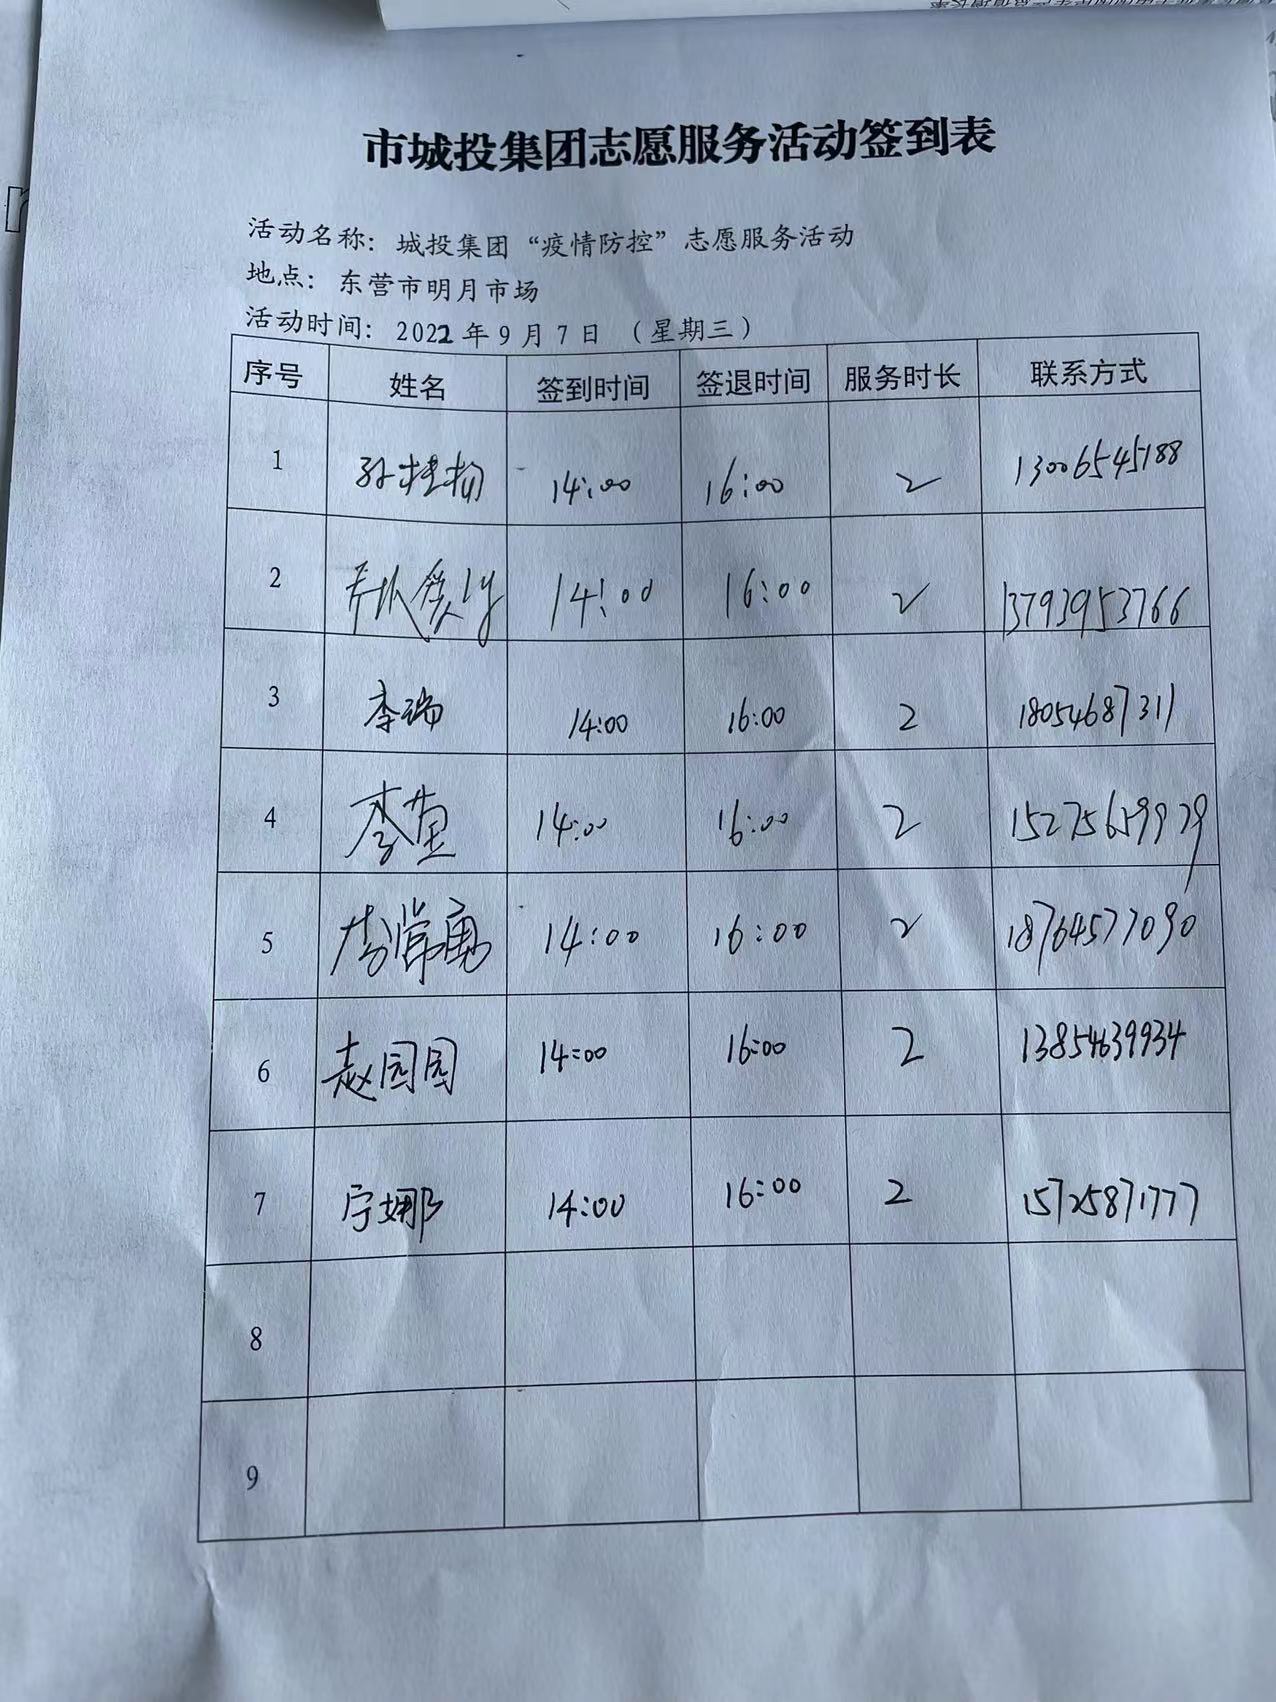 市城投集团志愿服务活动签到表
活动名称：城投集团“疫情防控”志愿服务活动
地点：东营市明月市场
活动时间：2022年9月7日（星期三）
序号 姓名 签到时间 签退时间 服务时长 联系方式
1 孙桂杨 14:00 16:00 2 13006545188
2 14:00 16:00 2 13793953766
3 李瑞 14:00 16:00 2 18054687311
4 李萱 14:00 16:00 2
5 李常勇 14:00 16:00 2 18764577090
6 赵园园 14:00 16:00 2 13854639934
7 宁娜 14:00 16:00 2 15725871777
8
9